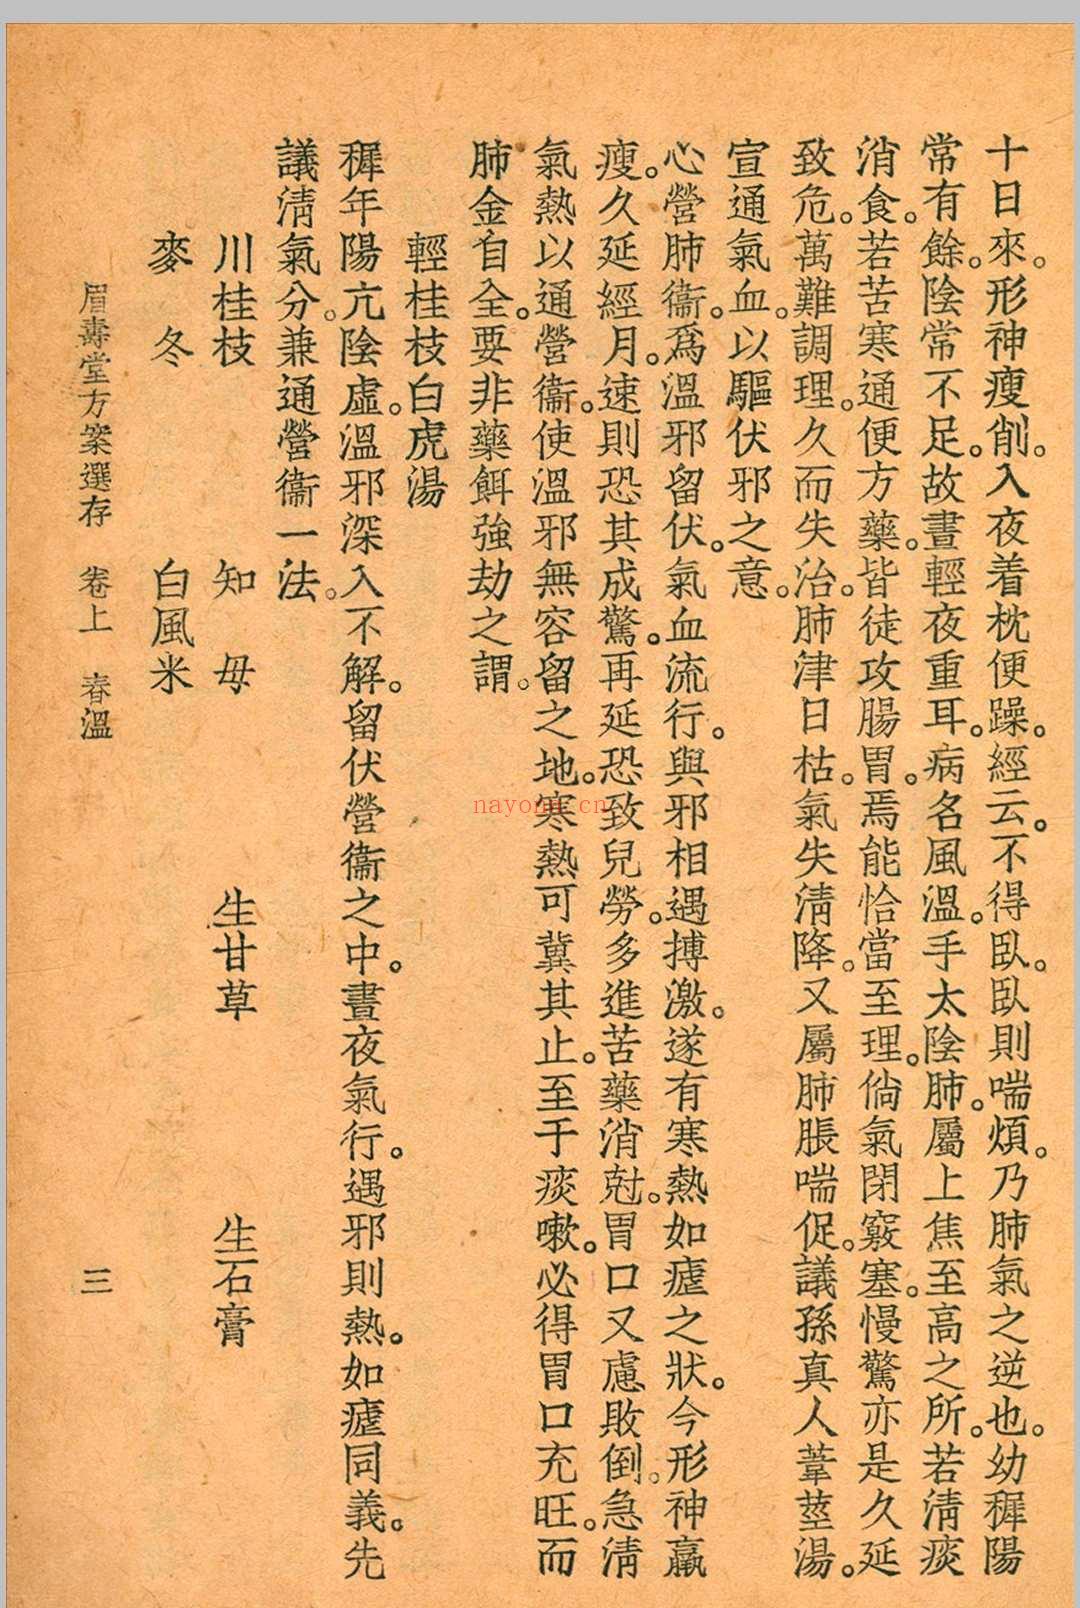 十日來。形神瘦削。入夜着枕便躁。經云。不得臥。臥則喘煩。乃肺氣之逆也。幼穉陽
常有餘。陰常不足。故晝輕夜重耳。病名風溫。手太陰肺。屬上焦至高之所。若清痰
消食。若苦寒通便方藥。皆徒攻腸胃。焉能恰當至理。倘氣閉竅塞。慢驚亦是久延
致危。萬難調理。久而失治。肺津日枯。氣失清降。又屬肺脹喘促。議孫真人葦莖湯。
宣通氣血。以驅伏邪之意。
心營肺衞。爲溫邪留伏。氣血流行。與邪相遇搏激。遂有寒熱如瘧之狀。今形神羸
瘦。久延經月。速則恐其成驚。再延恐致兒勞。多進苦藥消尅。胃口又慮敗倒。急清
氣熱以通營衞。使溫邪無容留之地。寒熱可冀其止。至于痰嗽。必得胃口充旺。而
肺金自全。要非藥餌強劫之謂。
輕桂枝白虎湯
穉年陽亢陰虛。溫邪深入不解。留伏營衞之中。晝夜氣行。遇邪則熱。如瘧同義。先
議清氣分。兼通營衞一法。
川桂枝 知母 生甘草 生石膏
麥冬 白風米
眉壽堂方案選存 卷上 春溫 三
nayona.cn